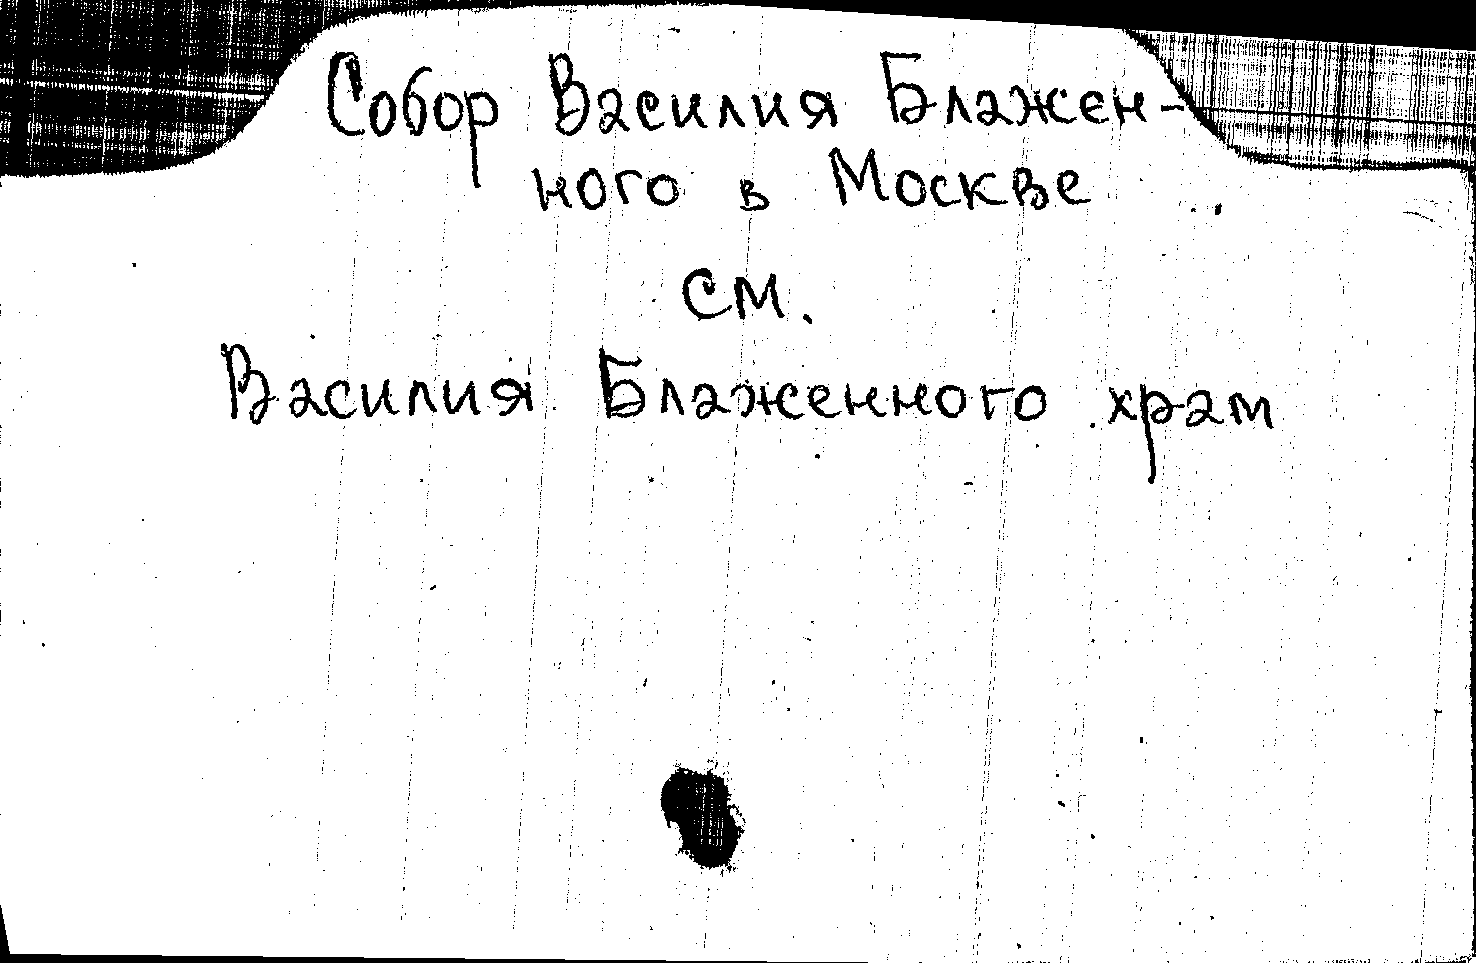 Собор Василия Блажен-
ного в Москве
см.
Василия Блаженного храм